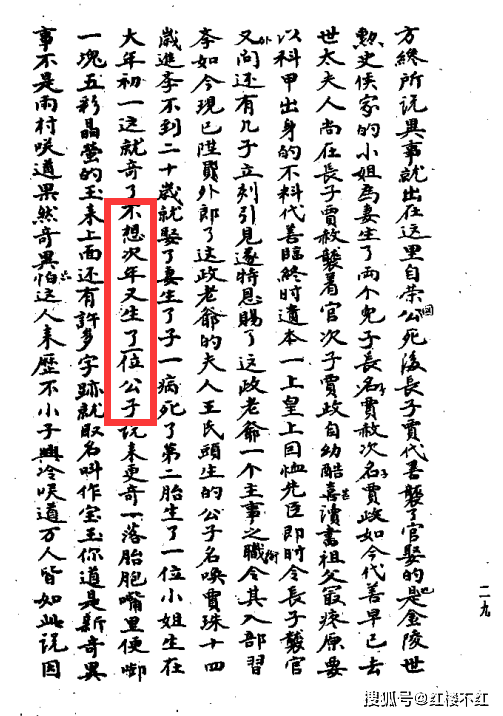 方終所説異事就出在这里自荣國公死後長子賈代善襲了官娶的是金陵世
勲史侯家的小姐為妻生了两个兒子長名賈赦次名賈政如今代善早已去
世太夫人尚在長子賈赦襲着官次子賈政自幼酷喜讀書祖父冣疼原要
以科甲出身的不料代善臨終時遺本一上皇上因恤先臣即時令長子襲官
外又問还有几子立刻引見遂特恩賜了这政老爺一个主事之職衔令其入部習
李如今現已陞員外郎了这政老爺的夫人王氏頭生的公子名喚賈珠十四
歳進李不到二十歳就娶了妻生了子一病死了第二胎生了一位小姐生在
大年初一这就奇了不想次年又生了一位公子説来更奇一落胎胞嘴里便啣
一塊五彩晶莹的玉来上面还有許多字跡就取名叫作宝玉你道是新奇異
事不是雨村咲道果然奇異怕这人来歷不小子興冷咲道万人皆如此説因
二九
搜狐号@红楼不红